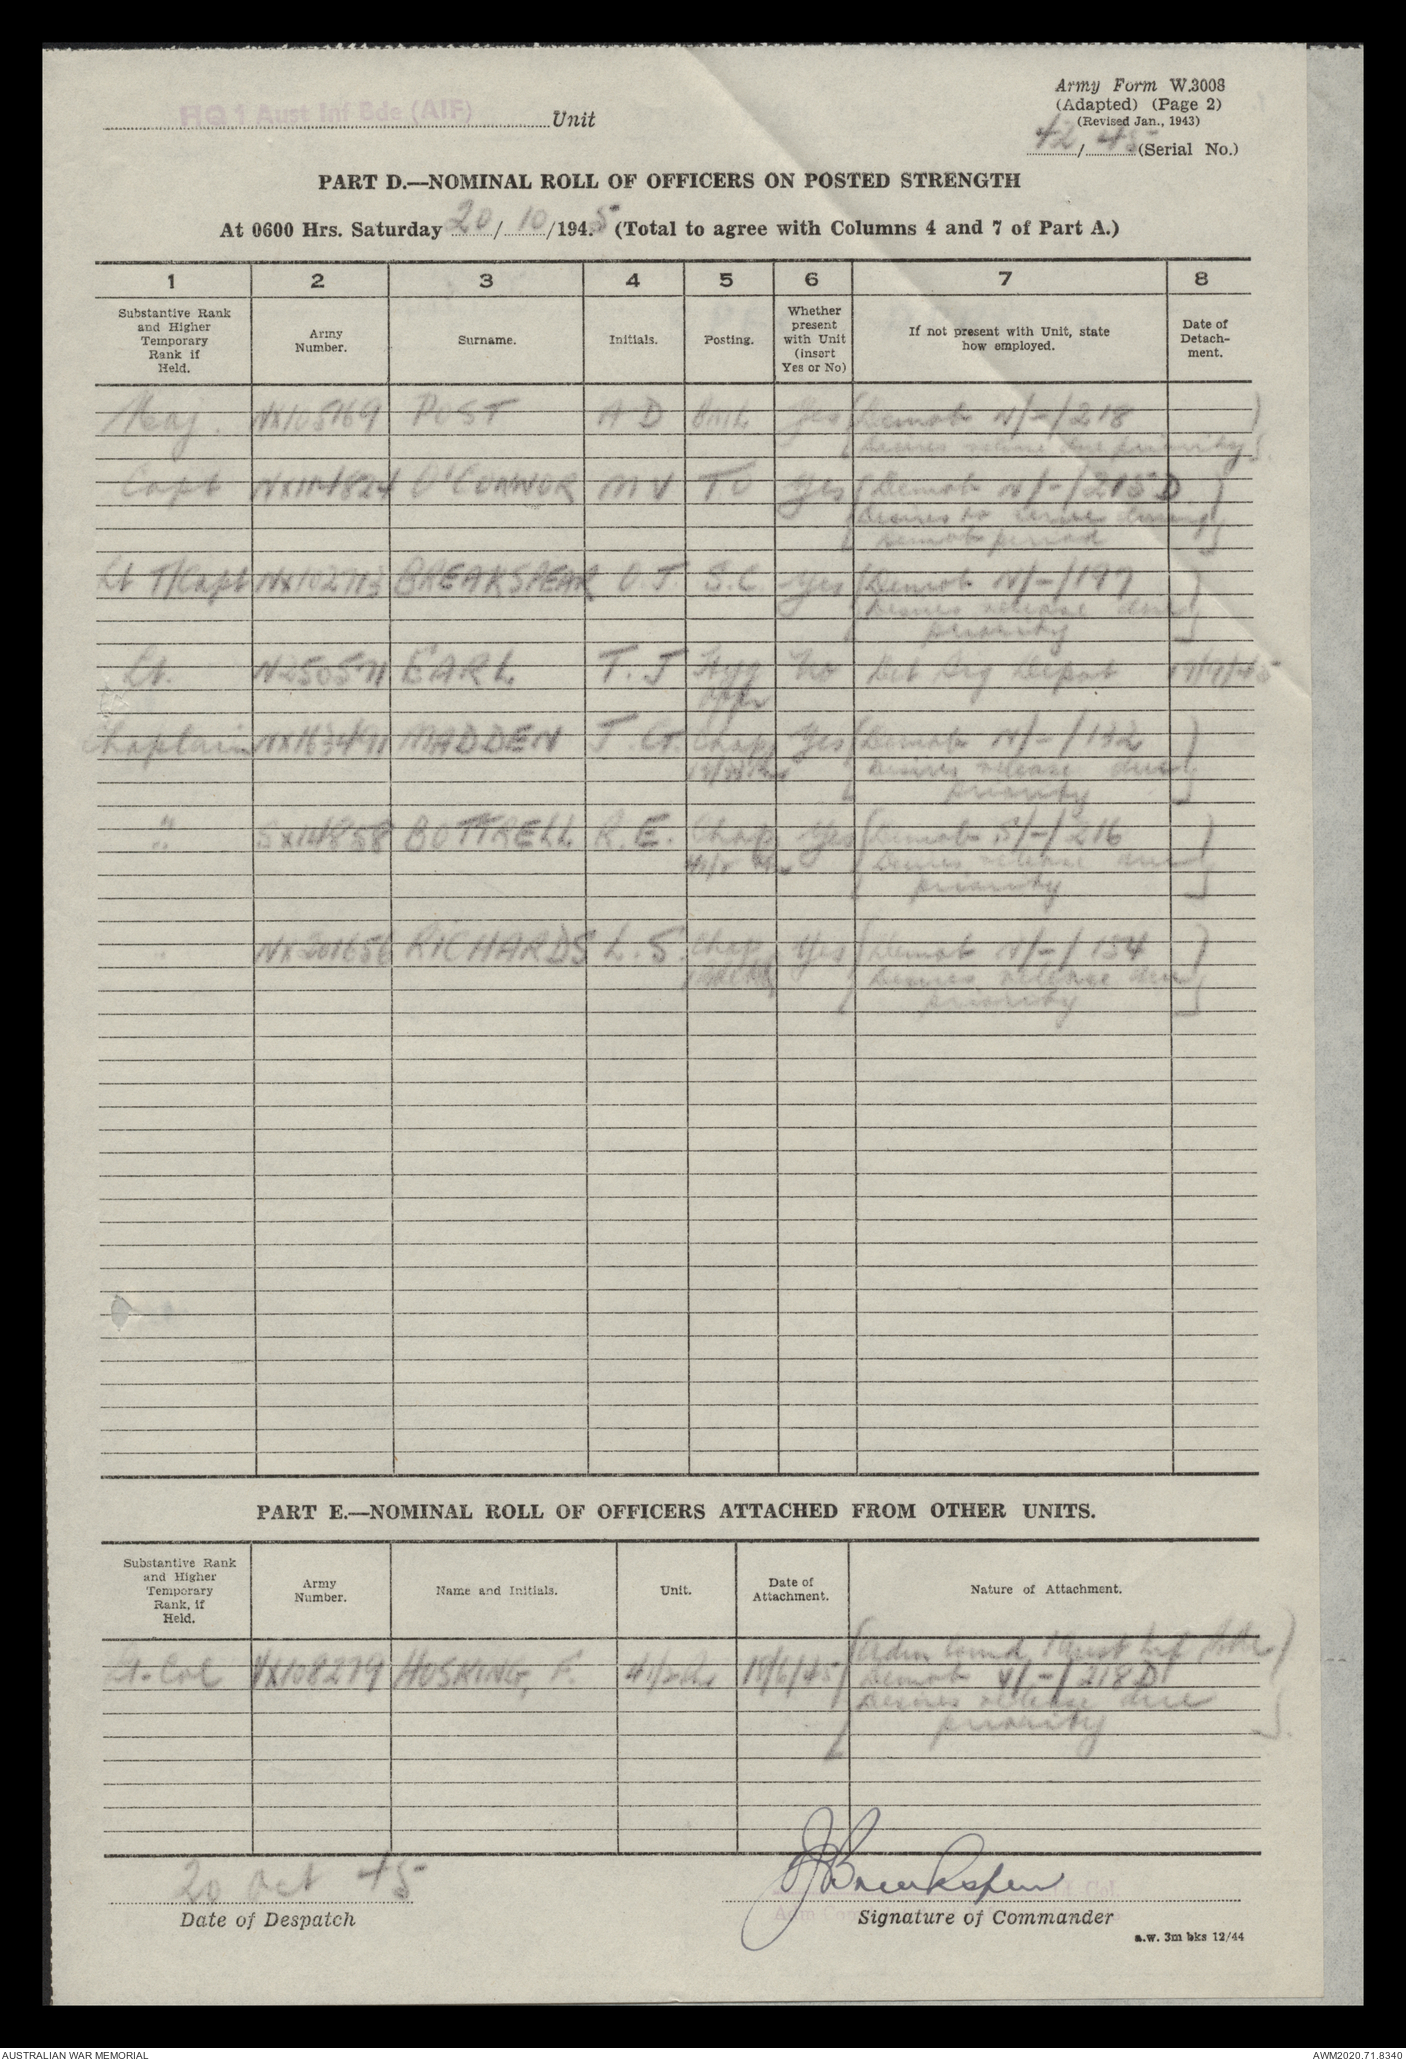 HQ 1 Aust Inf Bde (AIF) Unit
Army Form W.3008
(Adapted) (Page 2)
(Revised Jan., 1943)
42/45 (Serial No.)
PART D.—NOMINAL ROLL OF OFFICERS ON POSTED STRENGTH
At 0600 Hrs. Saturday 20/10/1945 (Total to agree with Columns 4 and 7 of Part A.)
1 2 3 4 5 6 7 8
Substantive Rank and Higher Temporary Rank if Held. Army Number. Surname. Initials. Posting. Whether present with Unit (insert Yes or No) If not present with Unit, state how employed. Date of Detach-ment.
Maj. NX105169 POST A D Yes (Demob N/-/218 )
Desires release due priority
Capt O'CONNOR M V TO Yes (Demob N/-/215D )
Desires to serve during
demob period
Lt T/Capt NX102713 BREAKSPEAR O.J. S.C. Yes (Demob N/-/197 )
Desires release due
priority
Lt. N250571 EARL T. J Hyg No Det Sig Depot 19/9/45
Offr
Chaplain NX163471 MADDEN J. G. Chap Yes (Demob N/-/132 )
Desires release due
priority
" SX14858 BOTTRELL R. E. Chap Yes (Demob S/-/216 )
Desires release due
priority
" NX201656 RICHARDS L. S. Chap Yes (Demob N/-/154 )
Desires release due
priority
PART E.—NOMINAL ROLL OF OFFICERS ATTACHED FROM OTHER UNITS.
Substantive Rank and Higher Temporary Rank, if Held. Army Number. Name and Initials. Unit. Date of Attachment. Nature of Attachment.
(Adm Comd 1 Aust Inf Bde )
Lt-Col VX108279 HOSKING, F. 18/6/45 Demob V/-/218D
Desires release due
priority
20 Oct 45
Date of Despatch
OJBreakspear
Signature of Commander
a.w. 3m bks 12/44
AUSTRALIAN WAR MEMORIAL
AWM2020.71.8340